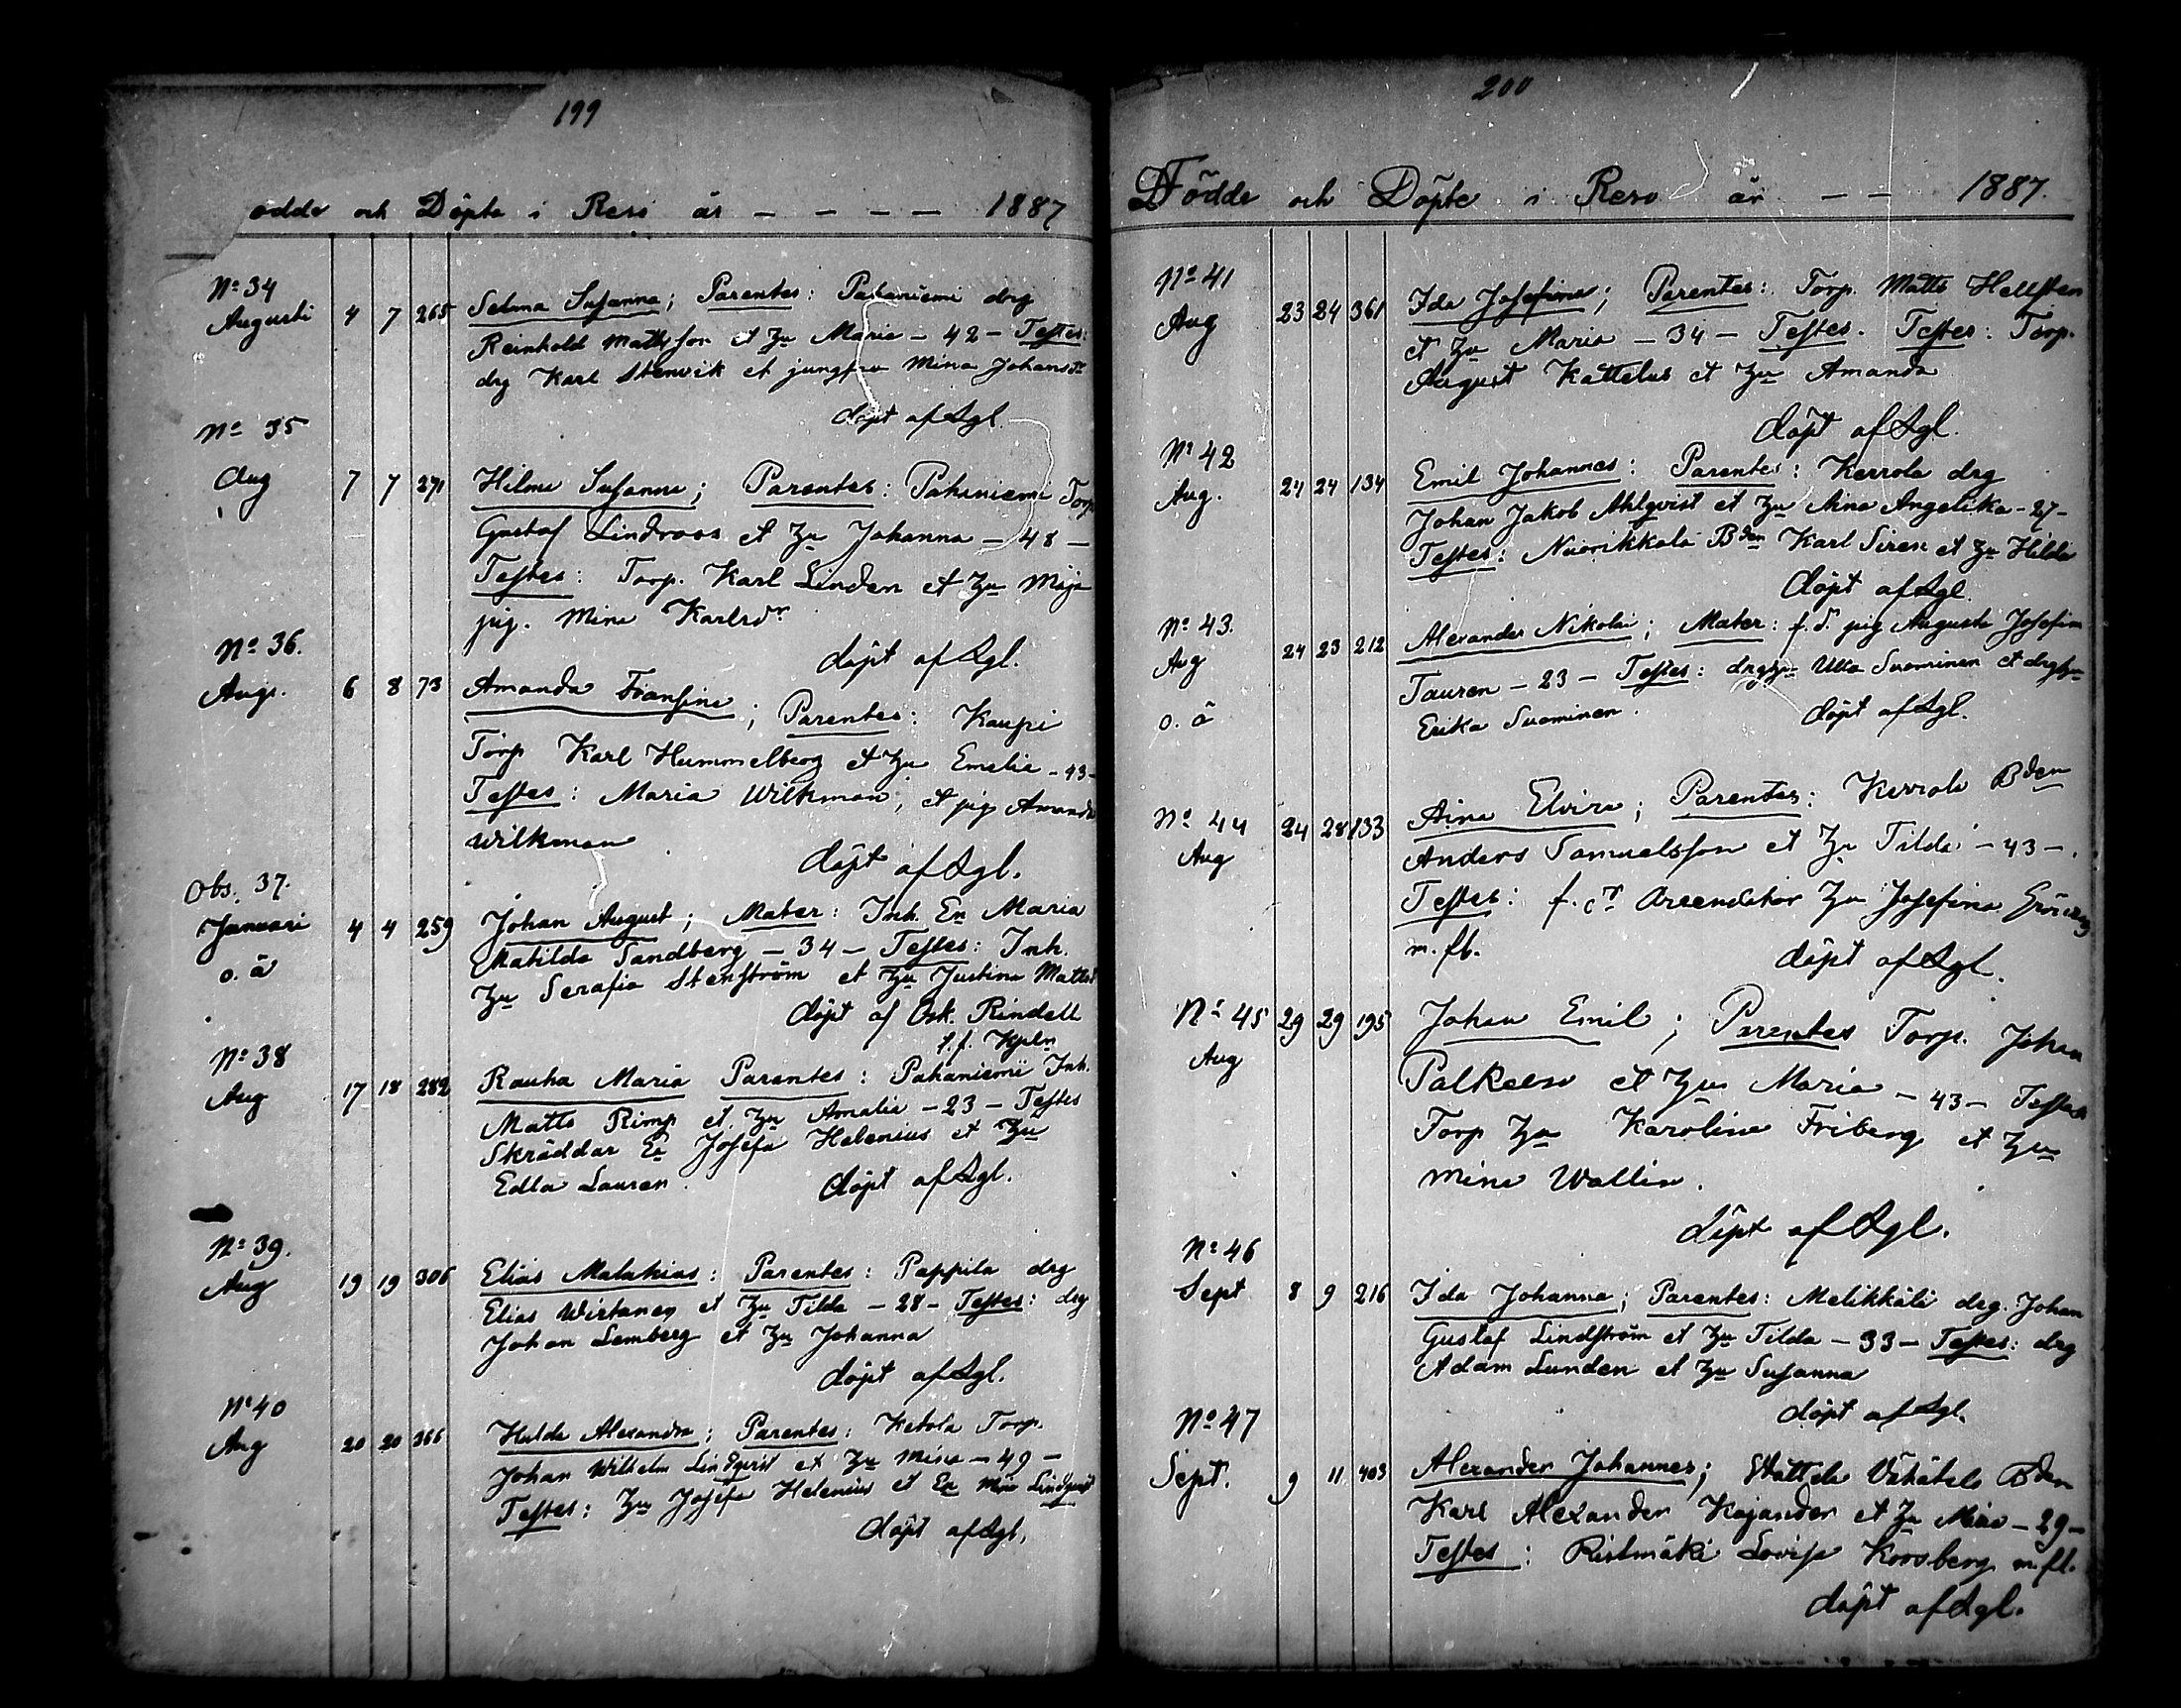 199
ödde och Döpte i Reso år – – – – 1887
No 34
Augusti 4 7 265 Selma Susanna; Parentes: Pahaniemi drg
Reinhold Mattsson et Hu Maria – 42 – Testes:
drg Karl Stenvik et jungfru Mina Johansdr
döpt af Agl.
No 35
Aug 7 7 271 Hilma Susanna; Parentes: Pahaniemi Torp
Gustaf Lindroos et Hu Johanna – 48 –
Testes: Torp. Karl Linden et Hu Maja
pig. Mina Karlsdr
döpt af Agl.
No 36.
Aug. 6 8 73 Amanda Fransina; Parentes: Kaupi
Torp Karl Hummelberg et Hu Emelia – 43 –
Testes: Maria Wilkman, et pig Amanda
Wilkman
döpt af Agl.
Obs. 37.
Januari 4 4 259 Johan August; Mater: Inh. En Maria
o. ä Matilda Sandberg – 34 – Testes: Inh.
Hu Serafia Stenström et Hu Justina
döpt af Osk. Rindell
t.f. Kpln
No 38
Aug 17 18 282 Rauha Maria Parentes: Pahaniemi Inh.
Matts Rimp et Hu Amalia – 23 – Testes
Skräddar En Josefa Helenius et Hu
Edla Lauren.
döpt af Agl.
No 39.
Aug 19 19 306 Elias Malakias: Parentes: Pappila drg
Elias Wirtanen et Hu Tilda – 28 – Testes: drg
Johan Lemberg et Hu Johanna
döpt af Agl.
No 40
Aug 20 20 366 Hulda Alexandra; Parentes: Ketola Torp.
Johan Wilhelm Lindqvist et Hu Mina – 49 –
Testes: Hu Josefa Helenius et En Mina Lindqvist
döpt af Agl.
200
Födde och Döpte i Reso år – – 1887.
No 41
Aug 23 24 361 Ida Josefina; Parentes: Torp. Matts Hellsten
et Hu Maria – 34 – Testes. Testes: Torp.
August Kattelus et Hu Amanda
döpt af Agl.
No 42
Aug. 24 24 134 Emil Johannes: Parentes: Kerrola drg
Johan Jakob Ahlqvist et Hu Aina Angelika – 27 –
Testes: Nuorikkala Bden Karl Siren et Hu Hilda
döpt af Agl.
No 43.
Aug 24 23 212 Alexander Nikolai; Mater: f. d. pig Augusta Josefina
Tauren – 23 – Testes: drghu Ulla Suominen et drghu
o. ä Erika Suominen.
döpt af Agl.
No 44 24 28 133 Aina Elvira; Parentes: Kerrola Bden
Aug Anders Samuelsson et Hu Tilda – 43 –.
Testes: f. Arendator Hu Josefina
m. fl.
döpt af Agl.
No 45 29 29 195 Johan Emil; Parentes Torp. Johan
Aug et Hu Maria – 43 – Testes
Torp Hu Karolina Friberg et Hu
Mina Wallin.
döpt af Agl.
No 46
Sept 8 9 216 Ida Johanna; Parentes: Melikkälä drg. Johan
Gustaf Lindström et Hu Tilda – 33 – Testes: drg
Adam Lunden et Hu Susanna
döpt af Agl.
No 47
Sept. 9 11 403 Alexander Johannes; Wättelä Bden
Karl Alexander Kajander et Hu Mina – 29 –
Testes: Ristimäki Lovisa Korsberg m. fl.
döpt af Agl.